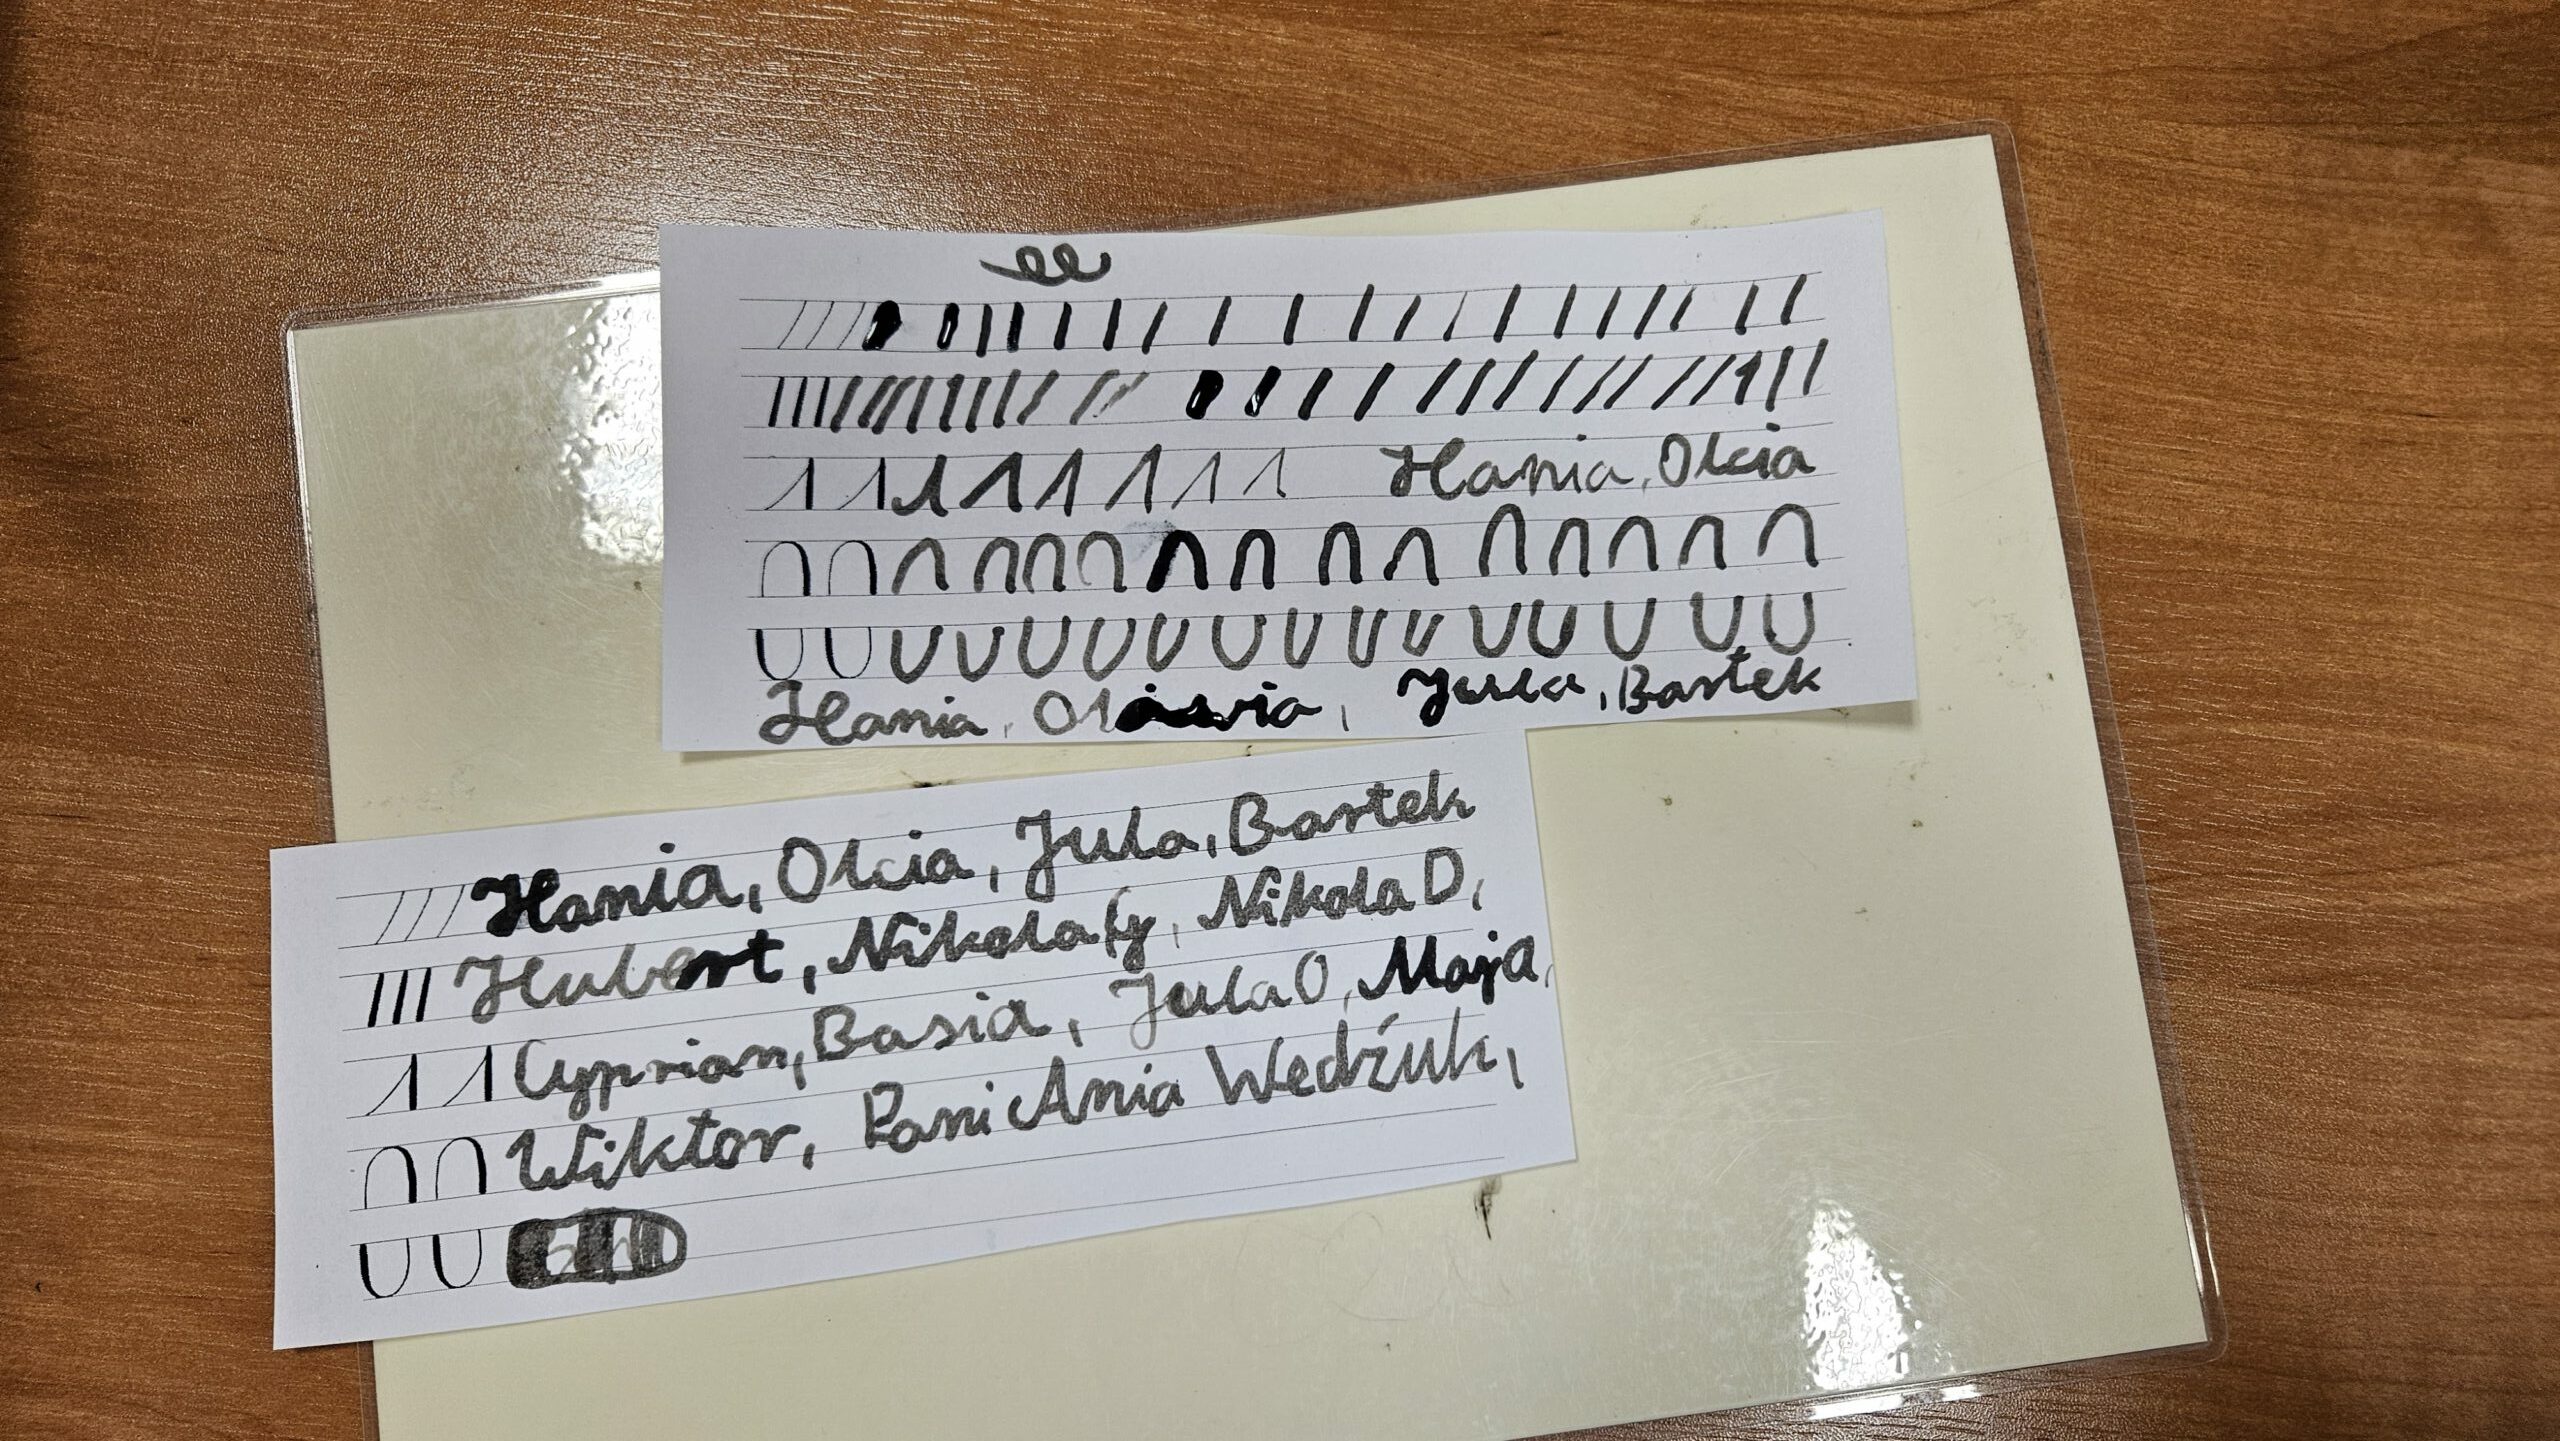 Hania, Olcia
Hania, Oliwia, Jula, Bartek
Hania, Olcia, Jula, Bartek
Hubert, Nikola G, Nikola D,
Cyprian, Basia, Jula O, Maja,
Wiktor, Pani Ania Wedźuk,